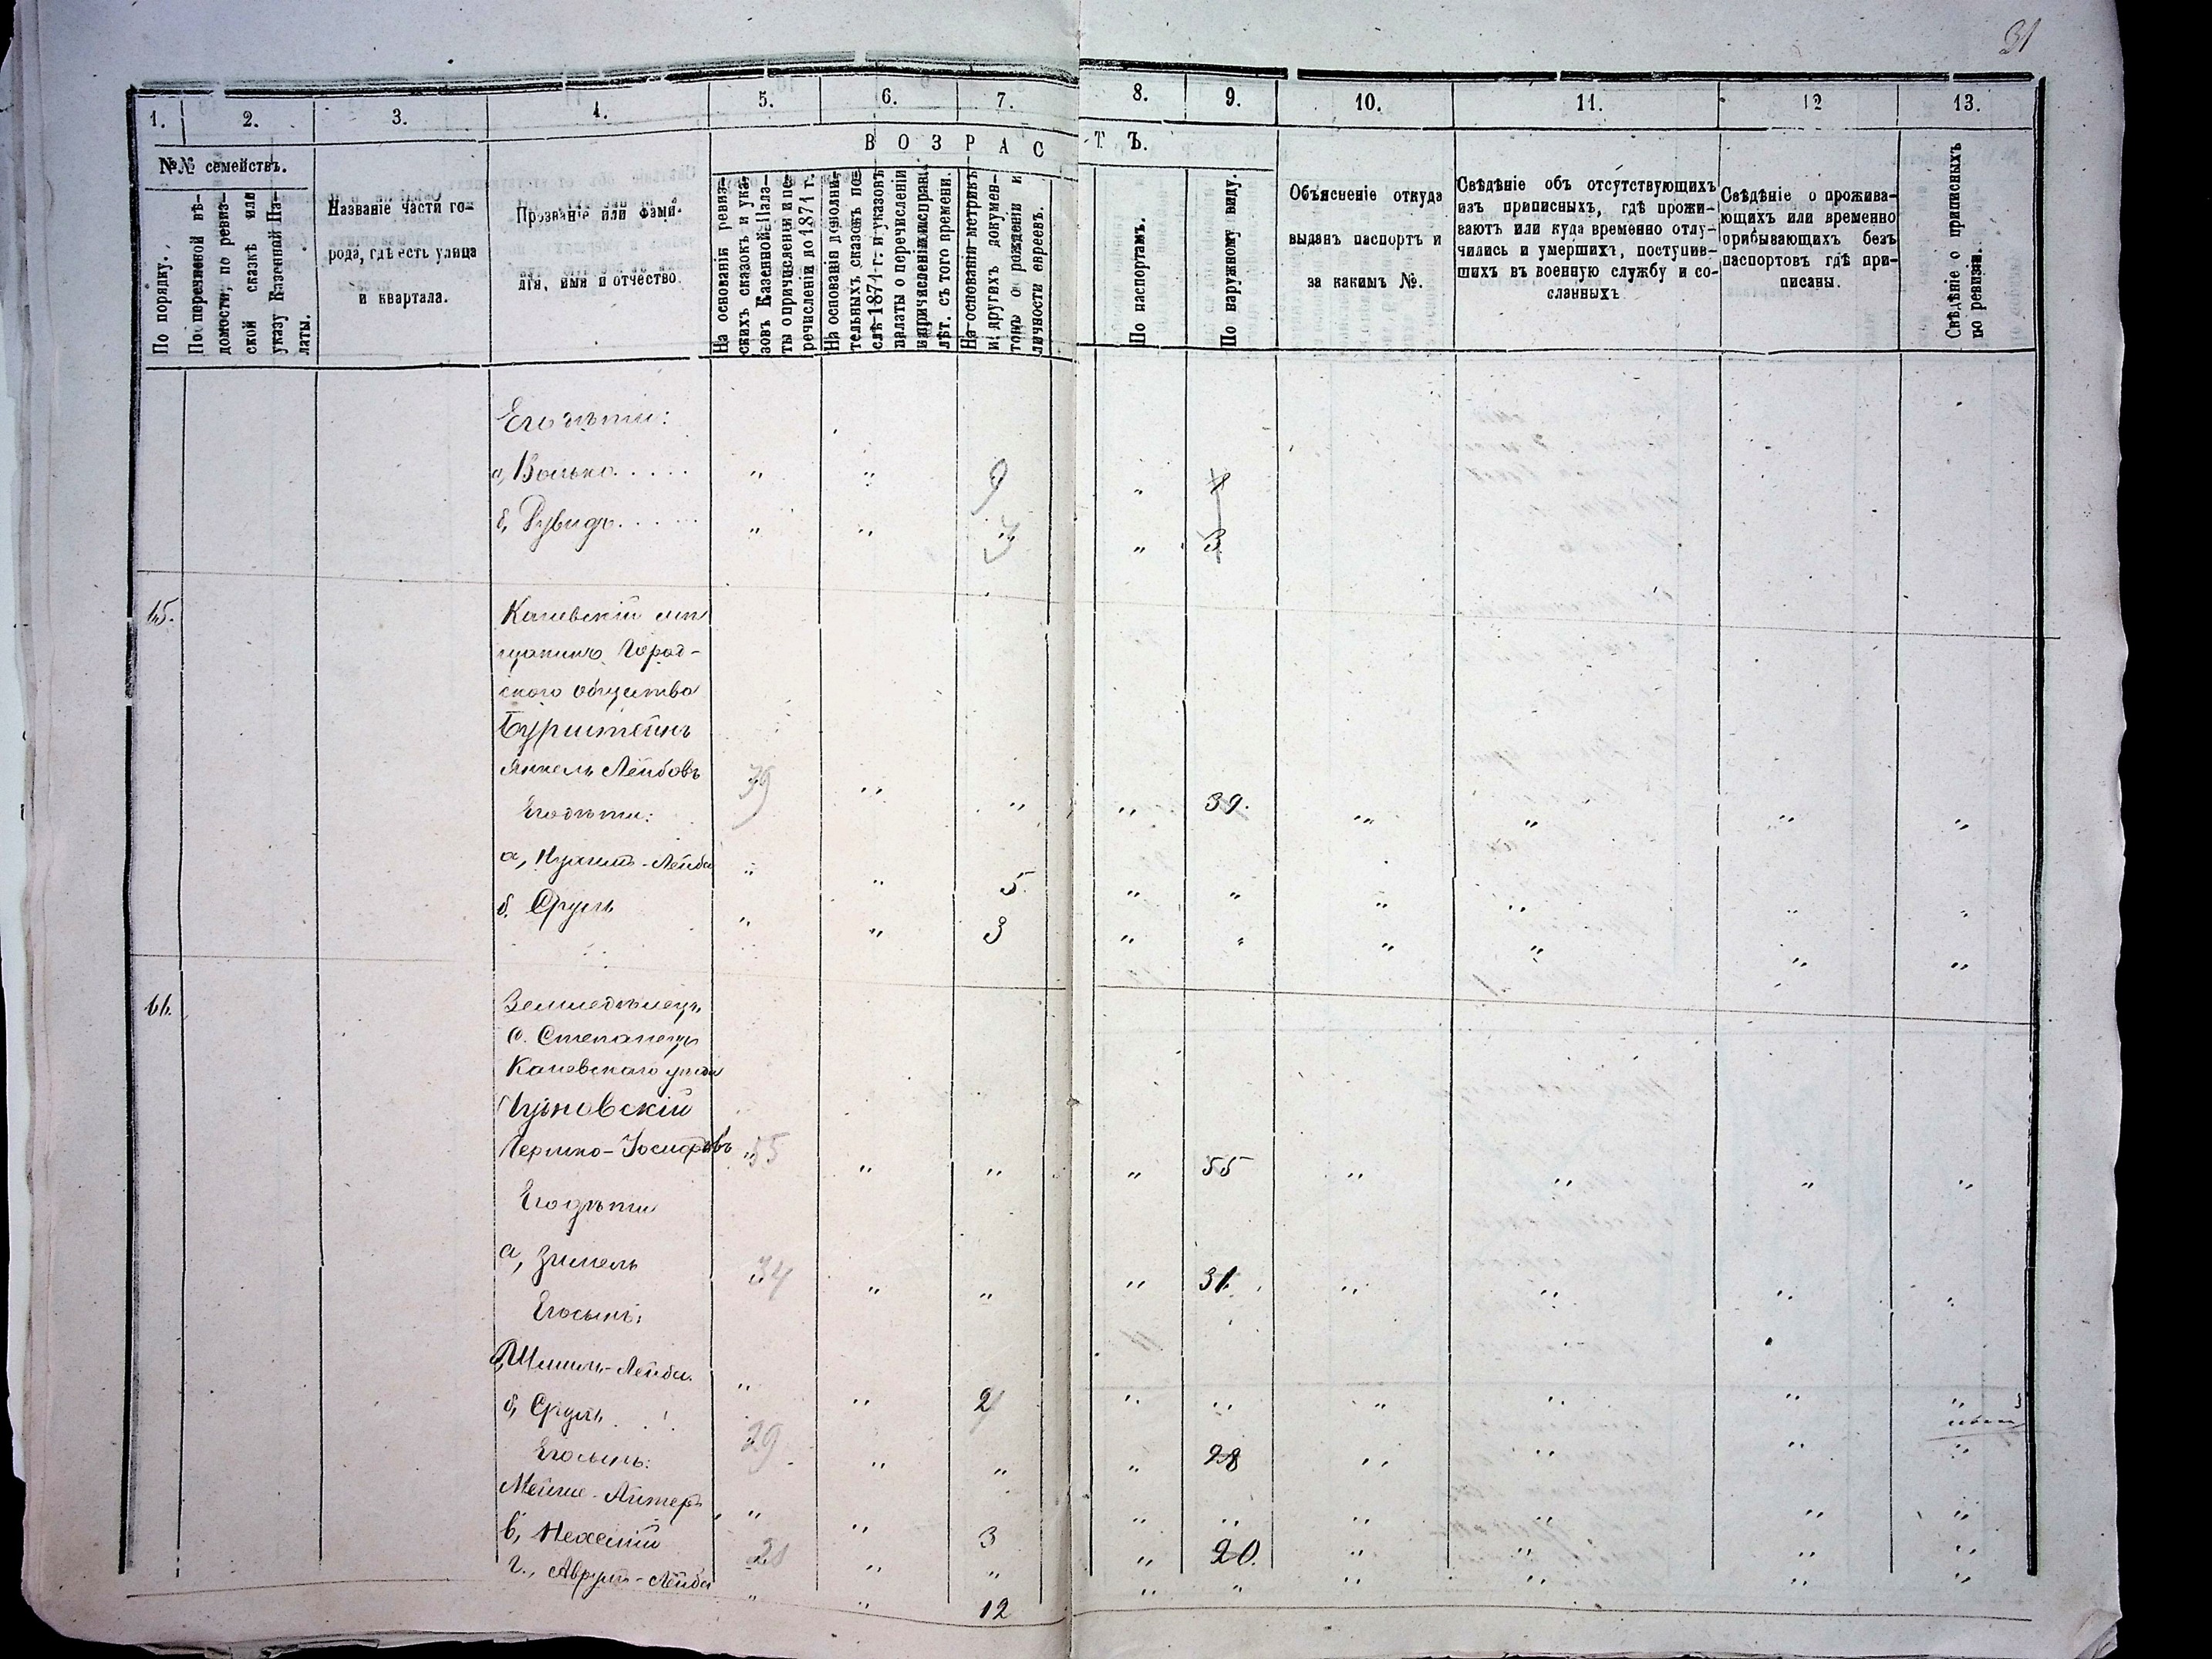 31
1. 2. 3. 4. 5. 6. 7. 8. 9. 10. 11. 12 13.
№№ семействъ.
В О З Р А С Т Ъ.
По порядку.
По переписной вѣ-
домости, по ревиз-
ской сказкѣ или
указу Казенной Па-
латы.
Названіе части го-
рода, гдѣ есть улица
и квартала.
Прозваніе или фами-
лія, имя и отчество.
На основаніи ревиз-
скихъ сказокъ и ука-
зовъ Казенной Пала-
ты о причисленіи и пе-
речисленіи до 1871 г.
На основаніи дополни-
тельныхъ сказокъ по-
слѣ 1871 г. и указовъ
палаты о перечисленіи
и причисленіи и исправл.
лѣт. съ того времени.
На основаніи метрикъ
и другихъ докумен-
товъ о рожденіи и
личности евреевъ.
По паспортамъ.
По наружному виду.
Объясненіе откуда
выданъ паспортъ и
за какимъ №.
Свѣдѣніе объ отсутствующихъ
изъ приписныхъ, гдѣ прожи-
ваютъ или куда временно отлу-
чились и умершихъ, поступив-
шихъ въ военную службу и со-
сланныхъ.
Свѣдѣніе о прожива-
ющихъ или временно
прибывающихъ безъ
паспортовъ гдѣ при-
писаны.
Свѣдѣніе о приписныхъ
по ревизіи.
Его дѣти:
а, Волько . . . . . " " 9 "
б, Рувидъ . . . . . " " 3 " 3
65.
Каневскій мѣ
щанинъ Город-
ского общества
Бурштейнъ
Янкель Лейбовъ 39 " " " 39. " " " "
Его дѣти:
а, Лейба " " 5. " " " " " "
б. Сруль " " 3 " " " " " "
66.
Земледѣлецъ
с. Степанецъ
Каневскаго уѣзда
Чуновскій
Гершко-Іосифовъ 55 " " " 55 " " " "
Его дѣти
а, Зимель 34 " " " 31. " " " "
Его сынъ:
Лейба. " " 2 " " " " " "
б, Сруль . . 29 " " " 28 " " " "
Его сынъ:
Алтеръ " " 3 " " " " " "
в, Нехемій " " " 20. " " " "
г., Аврумъ-Лейба " " 12 " " " " " "